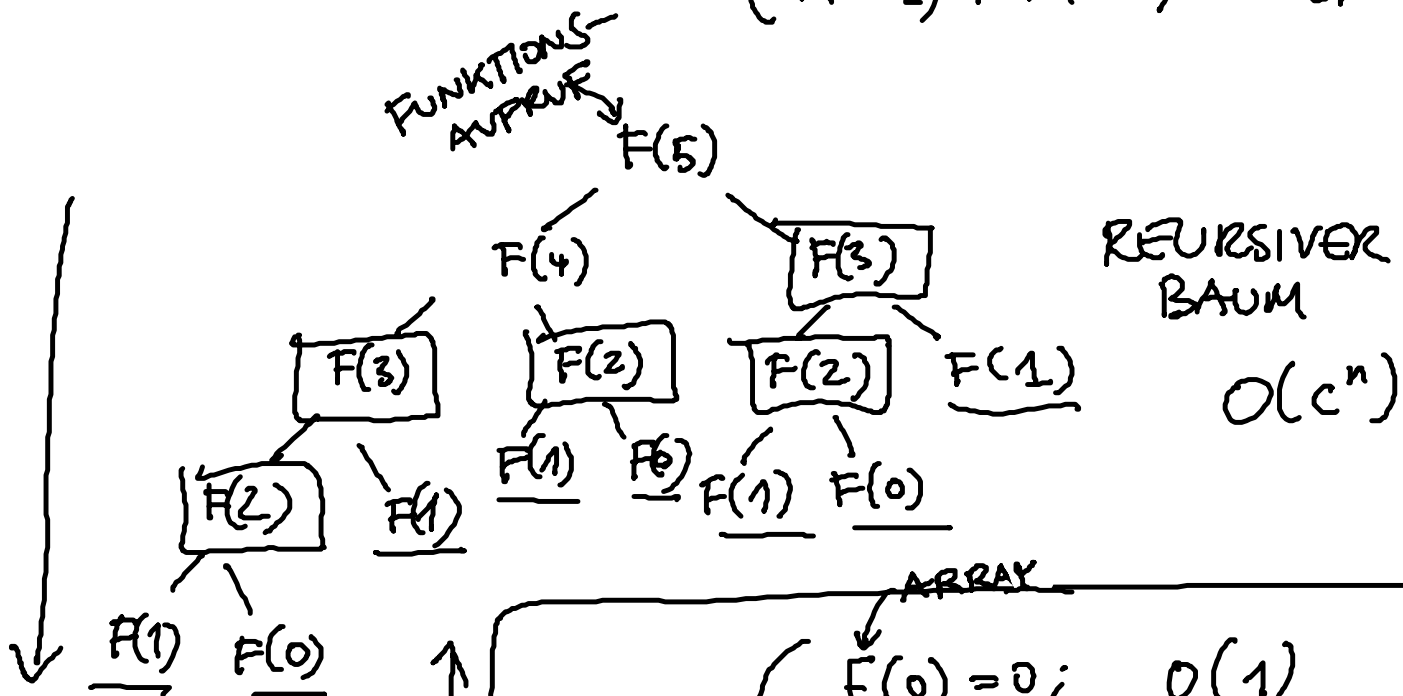 FUNKTIONS-
AUFRUF
F(5)
F(4) F(3)
REURSIVER
BAUM
F(3) F(2) F(2) F(1)
O(cⁿ)
F(2) F(1) F(1) F(0) F(1) F(0)
F(1) F(0)
ARRAY
F(0) = 0; O(1)